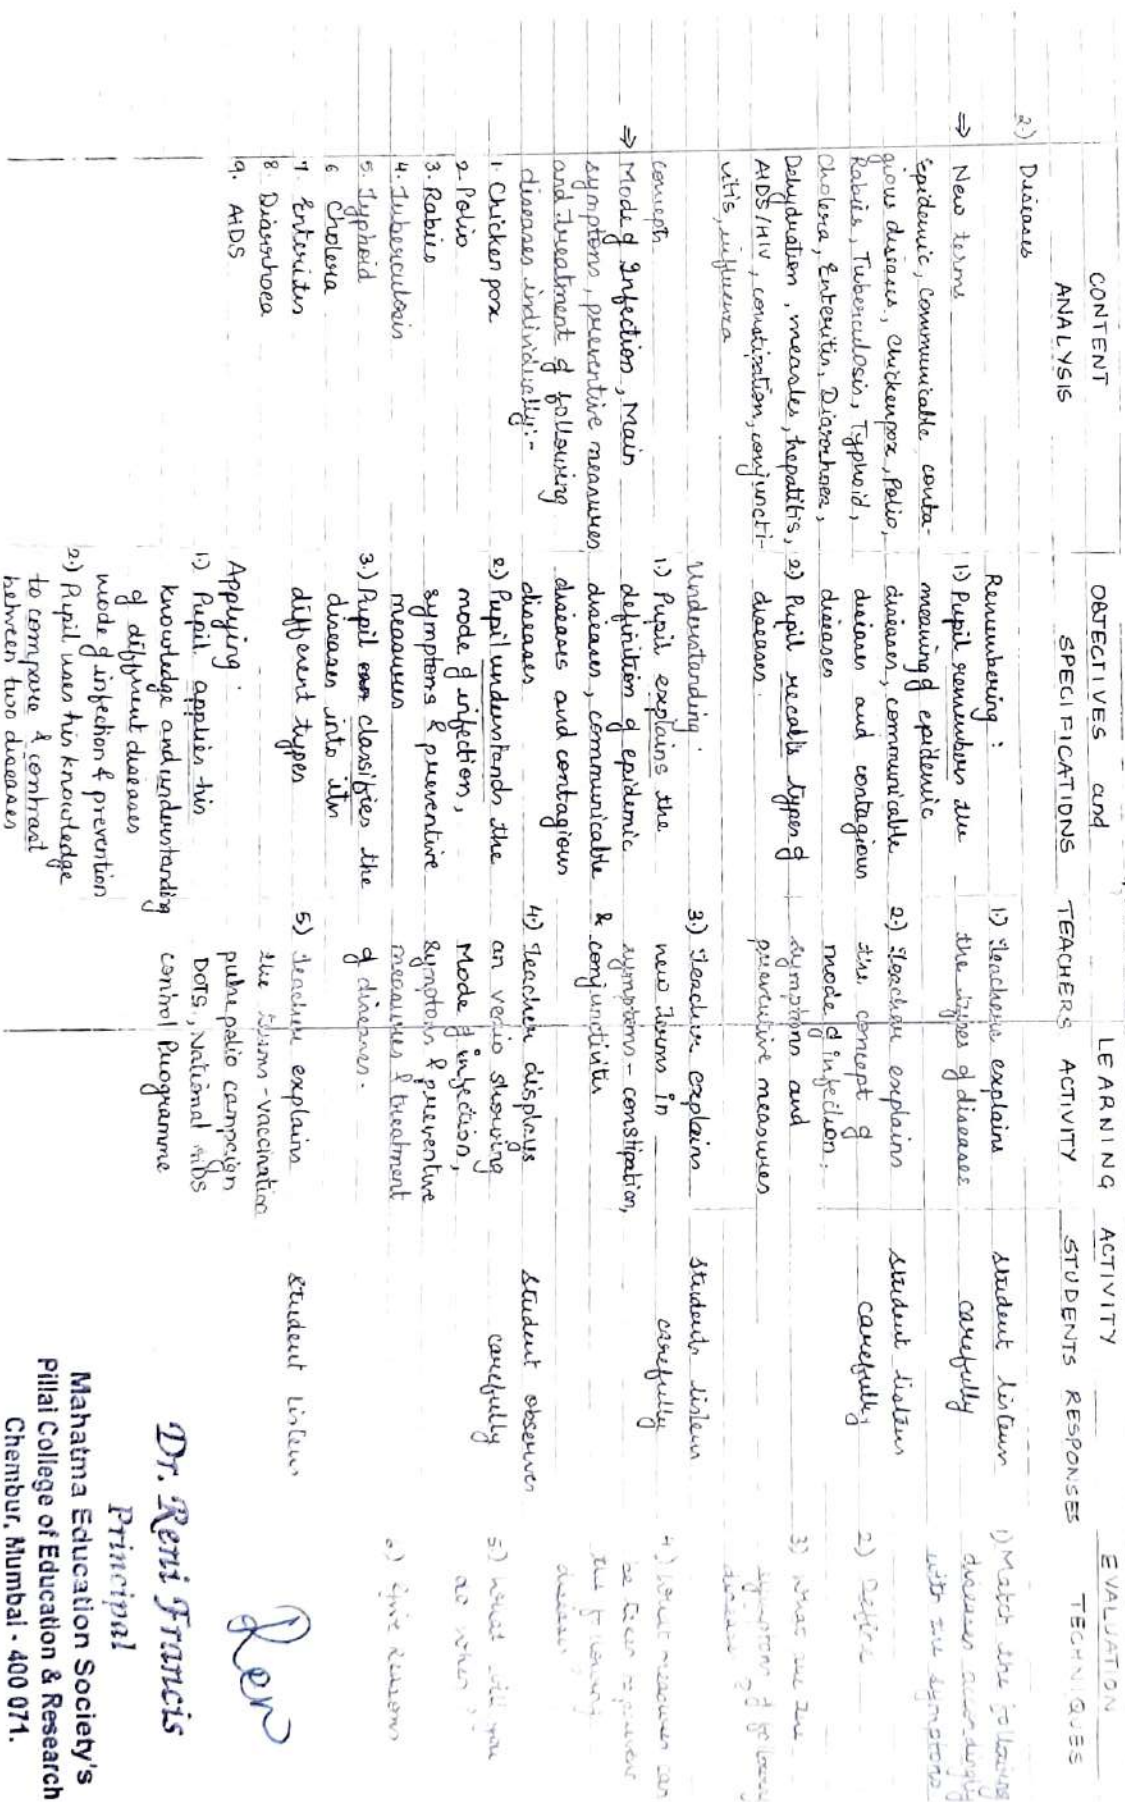 CONTENT
ANALYSIS
2.) Diseases
⇒ New terms
Epidemic, communicable conta-
gious diseases, Chickenpox, Polio,
Rabies, Tuberculosis, Typhoid,
Cholera, Enteritis, Diarrhoea,
Dehydration, measles, hepatitis,
AIDS/HIV, constipation, conjuncti-
vitis, influenza
concepts
⇒ Mode of Infection, Main
symptons, preventive measures
and treatment of following
diseases individually:-
1. Chicken pox
2. Polio
3. Rabies
4. Tuberculosis
5. Typhoid
6 Cholera
7. Enteritis
8. Diarrhoea
9. AIDS
OBJECTIVES and
SPECIFICATIONS
Remembering :
1) Pupil remembers the
meaning of epidemic
diseases, communicable
diseases and contagious
diseases
2) Pupil recalls types of
diseases.
Understanding :
1.) Pupil explains the
definition of epidemic
diseases, communicable
diseases and contagious
diseases.
2.) Pupil understands the
mode of infection,
symptoms & preventive
measures
3.) Pupil classifies the
diseases into its
different types
Applying :
1.) Pupil applies his
knowledge and understanding
of different diseases
mode of infection & prevention
2.) Pupil uses his knowledge
to compare & contrast
between two diseases
LEARNING ACTIVITY
TEACHERS ACTIVITY
1.) Teachers explains
the types of diseases
2.) Teacher explains
the concept of
mode of infection,
symptoms and
preventive measures
3.) Teacher explains
new terms in
symptoms - constipation,
& conjunctivitis
4.) Teacher displays
an vedio showing
Mode of infection,
Symptoms & preventive
measures & treatment
of diseases.
5) Teacher explains
the terms - vaccination
pulse polio campaign
DOTS, National AIDS
control Programme
STUDENTS RESPONSES
student listens
carefully
student listens
carefully
Students listens
carefully
Student observes
carefully
Student Listens
EVALUATION
TECHNIQUES
1) Match the following
diseases accordingly
with the symptoms
2) Define
3) What are the
symptoms of following
diseases ?
4) What measures can
be taken
the following
diseases
5) What will you
do when
6) Give reasons
Ren
Dr. Reni Francis
Principal
Mahatma Education Society's
Pillai College of Education & Research
Chembur, Mumbai - 400 071.